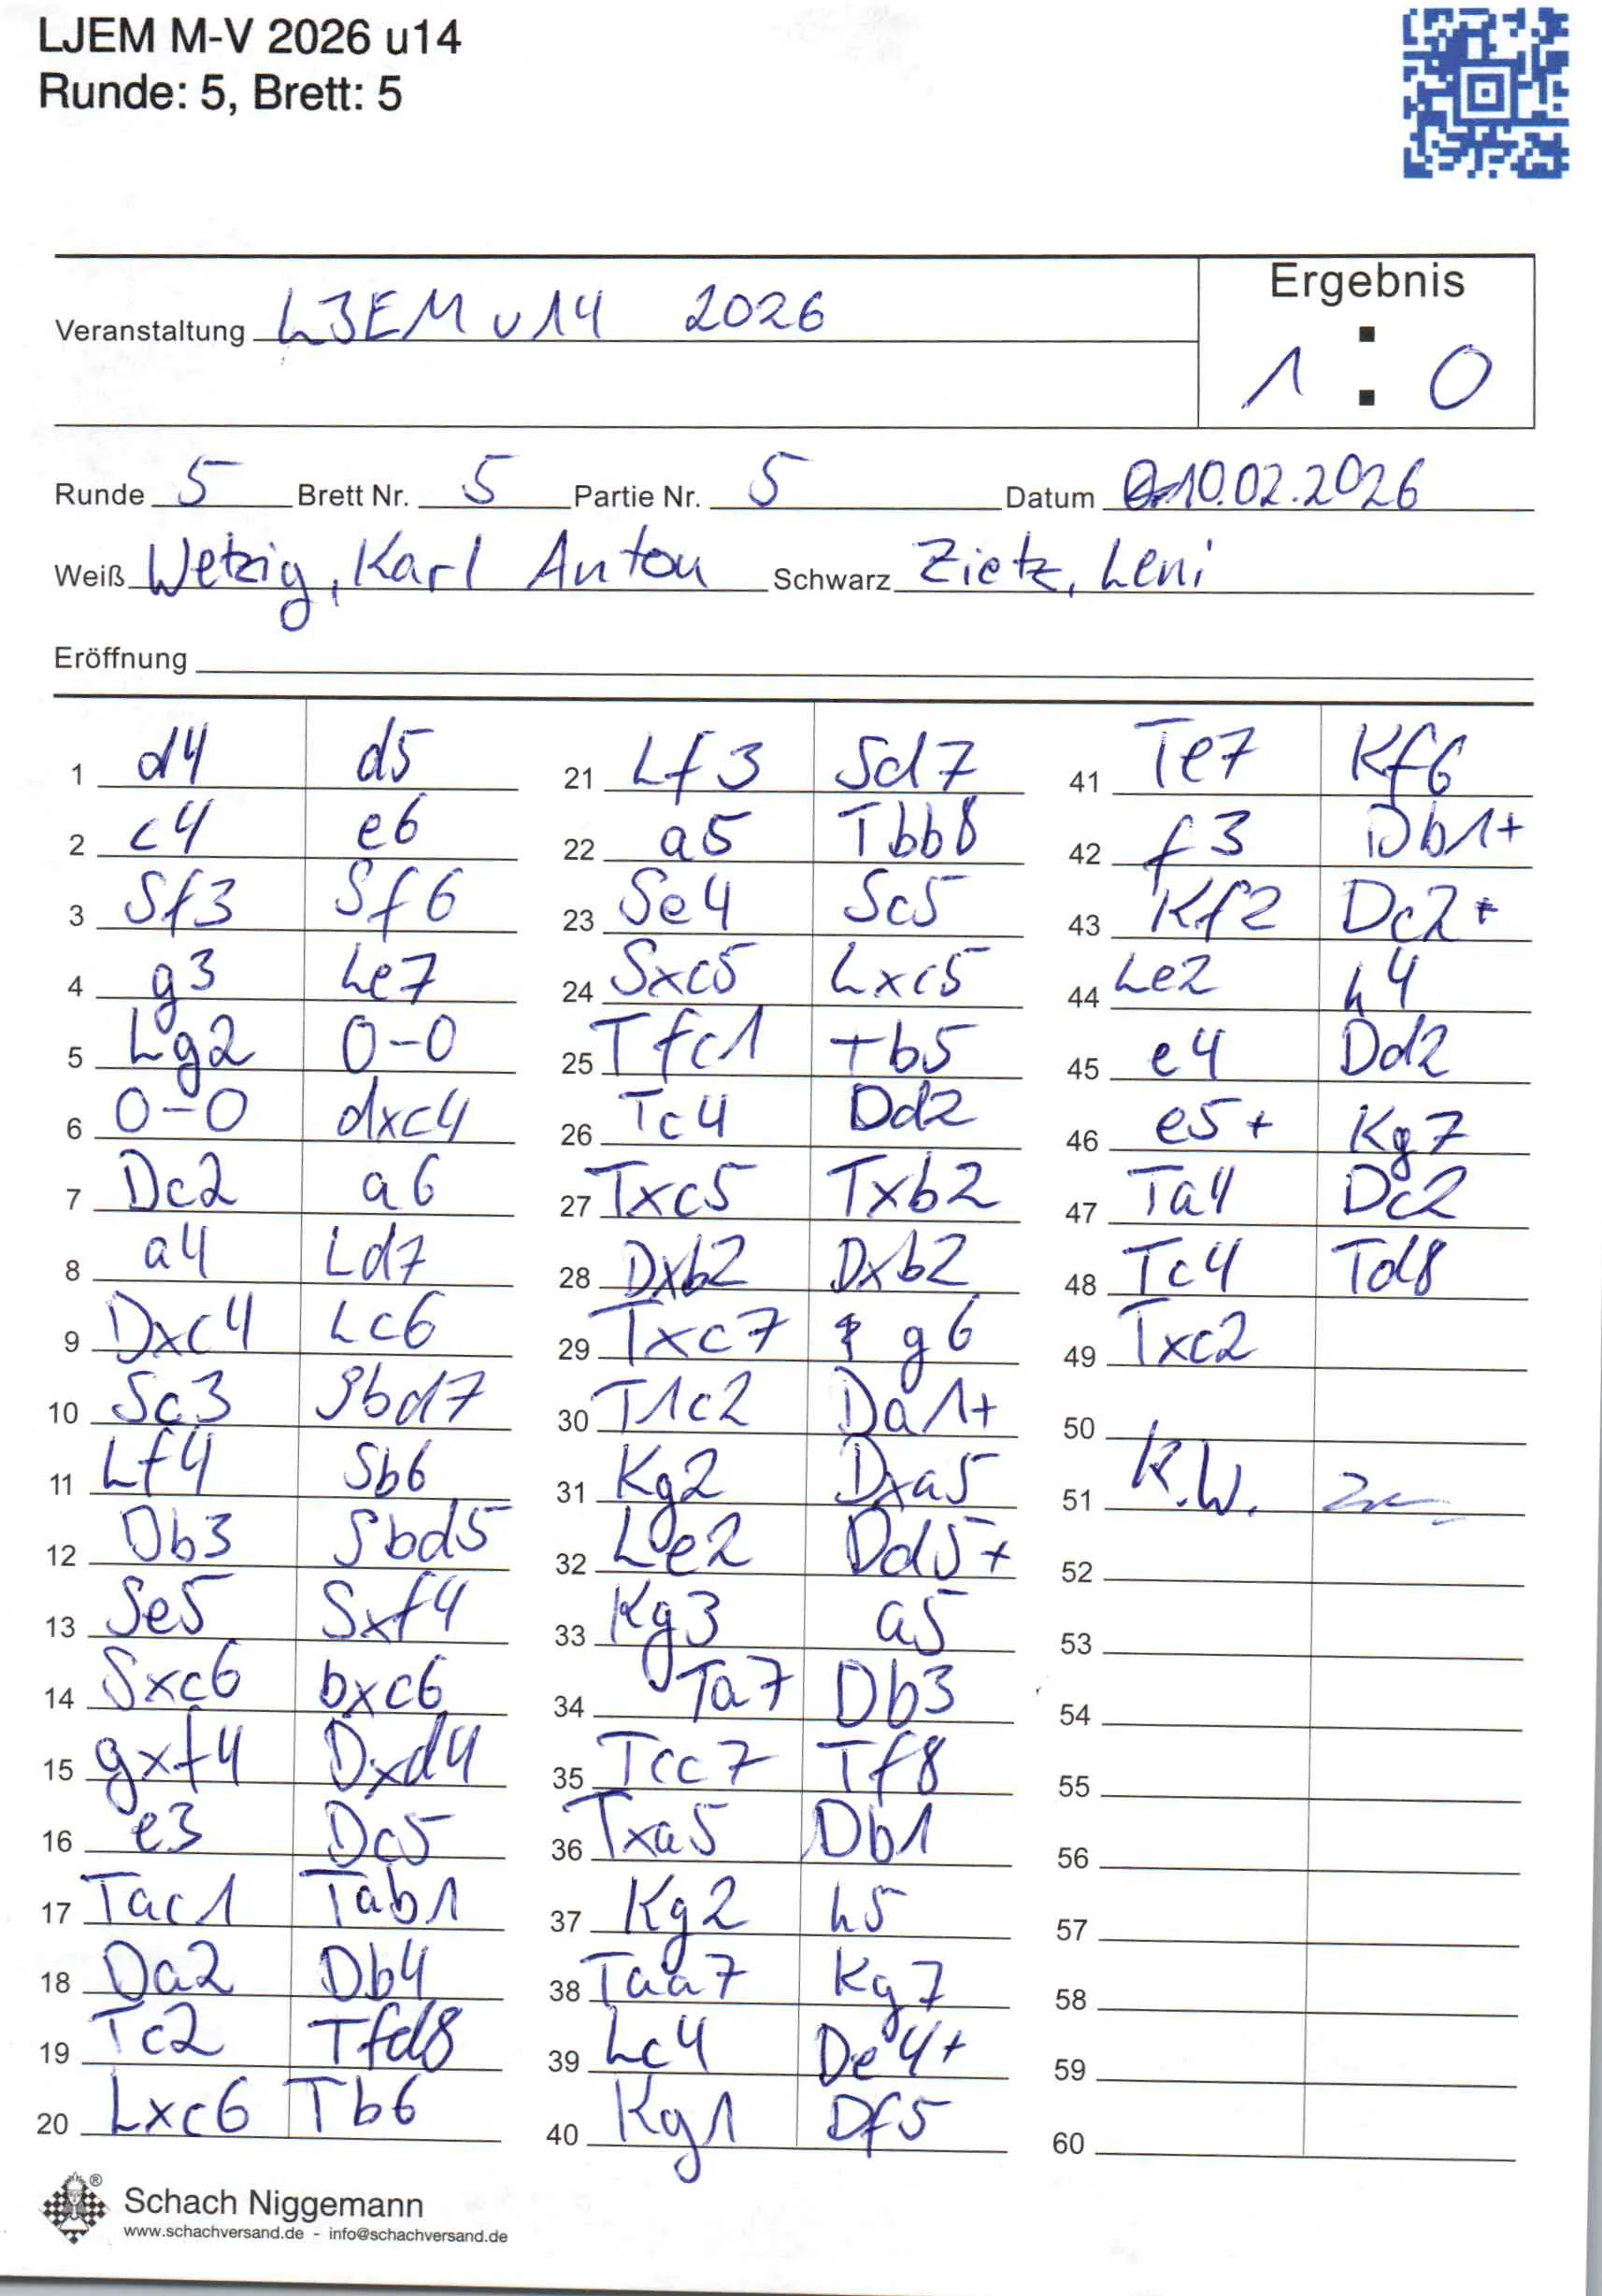 LJEM M-V 2026 u14
Runde: 5, Brett: 5
Ergebnis
Veranstaltung LJEM u14 2026
1 : 0
Runde 5 Brett Nr. 5 Partie Nr. 5 Datum 10.02.2026
Weiß Wetzig, Karl Anton Schwarz Zietz, Leni
Eröffnung
1 d4 d5
2 c4 e6
3 Sf3 Sf6
4 g3 Le7
5 Lg2 0-0
6 0-0 dxc4
7 Dc2 a6
8 a4 Ld7
9 Dxc4 Lc6
10 Sc3 Sbd7
11 Lf4 Sb6
12 Db3 Sbd5
13 Se5 Sxf4
14 Sxc6 bxc6
15 gxf4 Dxd4
16 e3 Dc5
17 Tac1 Tab1
18 Da2 Db4
19 Tc2 Tfd8
20 Lxc6 Tb6
21 Lf3 Sd7
22 a5 Tbb8
23 Se4 Sc5
24 Sxc5 Lxc5
25 Tfc1 Tb5
26 Tc4 Dd2
27 Txc5 Txb2
28 Dxb2 Dxb2
29 Txc7 g6
30 T1c2 Da1+
31 Kg2 Dxa5
32 Le2 Dd5+
33 Kg3 a5
34 Ta7 Db3
35 Tcc7 Tf8
36 Txa5 Db1
37 Kg2 h5
38 Taa7 Kg7
39 Lc4 De4+
40 Kg1 Df5
41 Te7 Kf6
42 f3 Db1+
43 Kf2 Dc2+
44 Le2 h4
45 e4 Dd2
46 e5+ Kg7
47 Ta4 Dc2
48 Tc4 Td8
49 Txc2
50
51 K.W.
52
53
54
55
56
57
58
59
60
Schach Niggemann
www.schachversand.de - info@schachversand.de